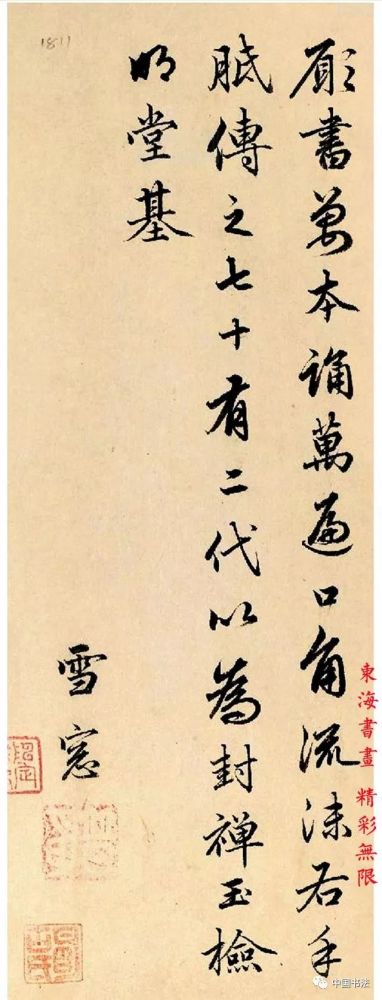 1811
願書萬本誦萬遍口角流沫右手
胝傳之七十有二代以為封禪玉檢
明堂基
雪窓
東海書畫 精彩無限
中国书法